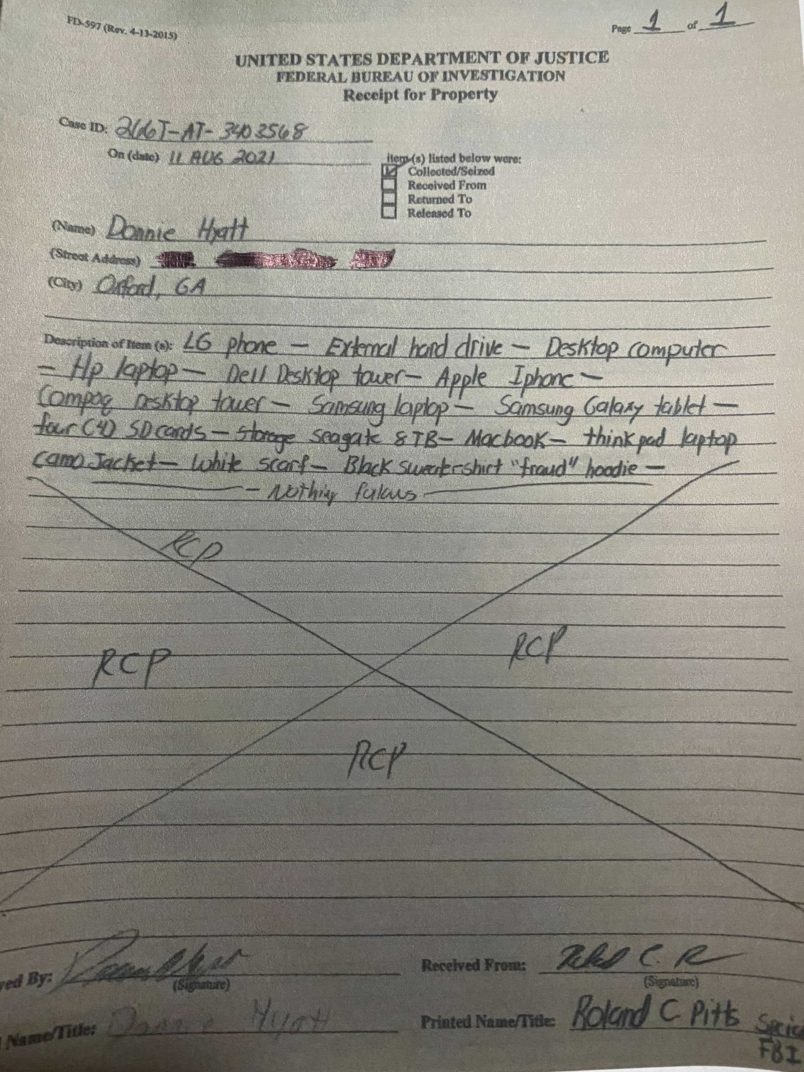 FD-597 (Rev. 4-13-2015)
Page 1 of 1
UNITED STATES DEPARTMENT OF JUSTICE
FEDERAL BUREAU OF INVESTIGATION
Receipt for Property
Case ID: 266T-AT-3403568
On (date) 11 AUG 2021
item (s) listed below were:
Collected/Seized
Received From
Returned To
Released To
(Name) Donnie Hyatt
(Street Address)
(City) Oxford, GA
Description of Item (s): LG phone — External hard drive — Desktop computer
— Hp laptop — Dell Desktop tower — Apple Iphone —
Compaq Desktop tower — Samsung laptop — Samsung Galaxy tablet —
four (4) SD cards — Storage seagate 8TB — Macbook — think pad laptop
Camo Jacket — White scarf — Black sweatershirt "fraud" hoodie —
— Nothing
RCP
RCP
RCP
RCP
yed By:
(Signature)
Received From:
(Signature)
Name/Title: Donnie Hyatt
Printed Name/Title: Roland C Pitts
FBI